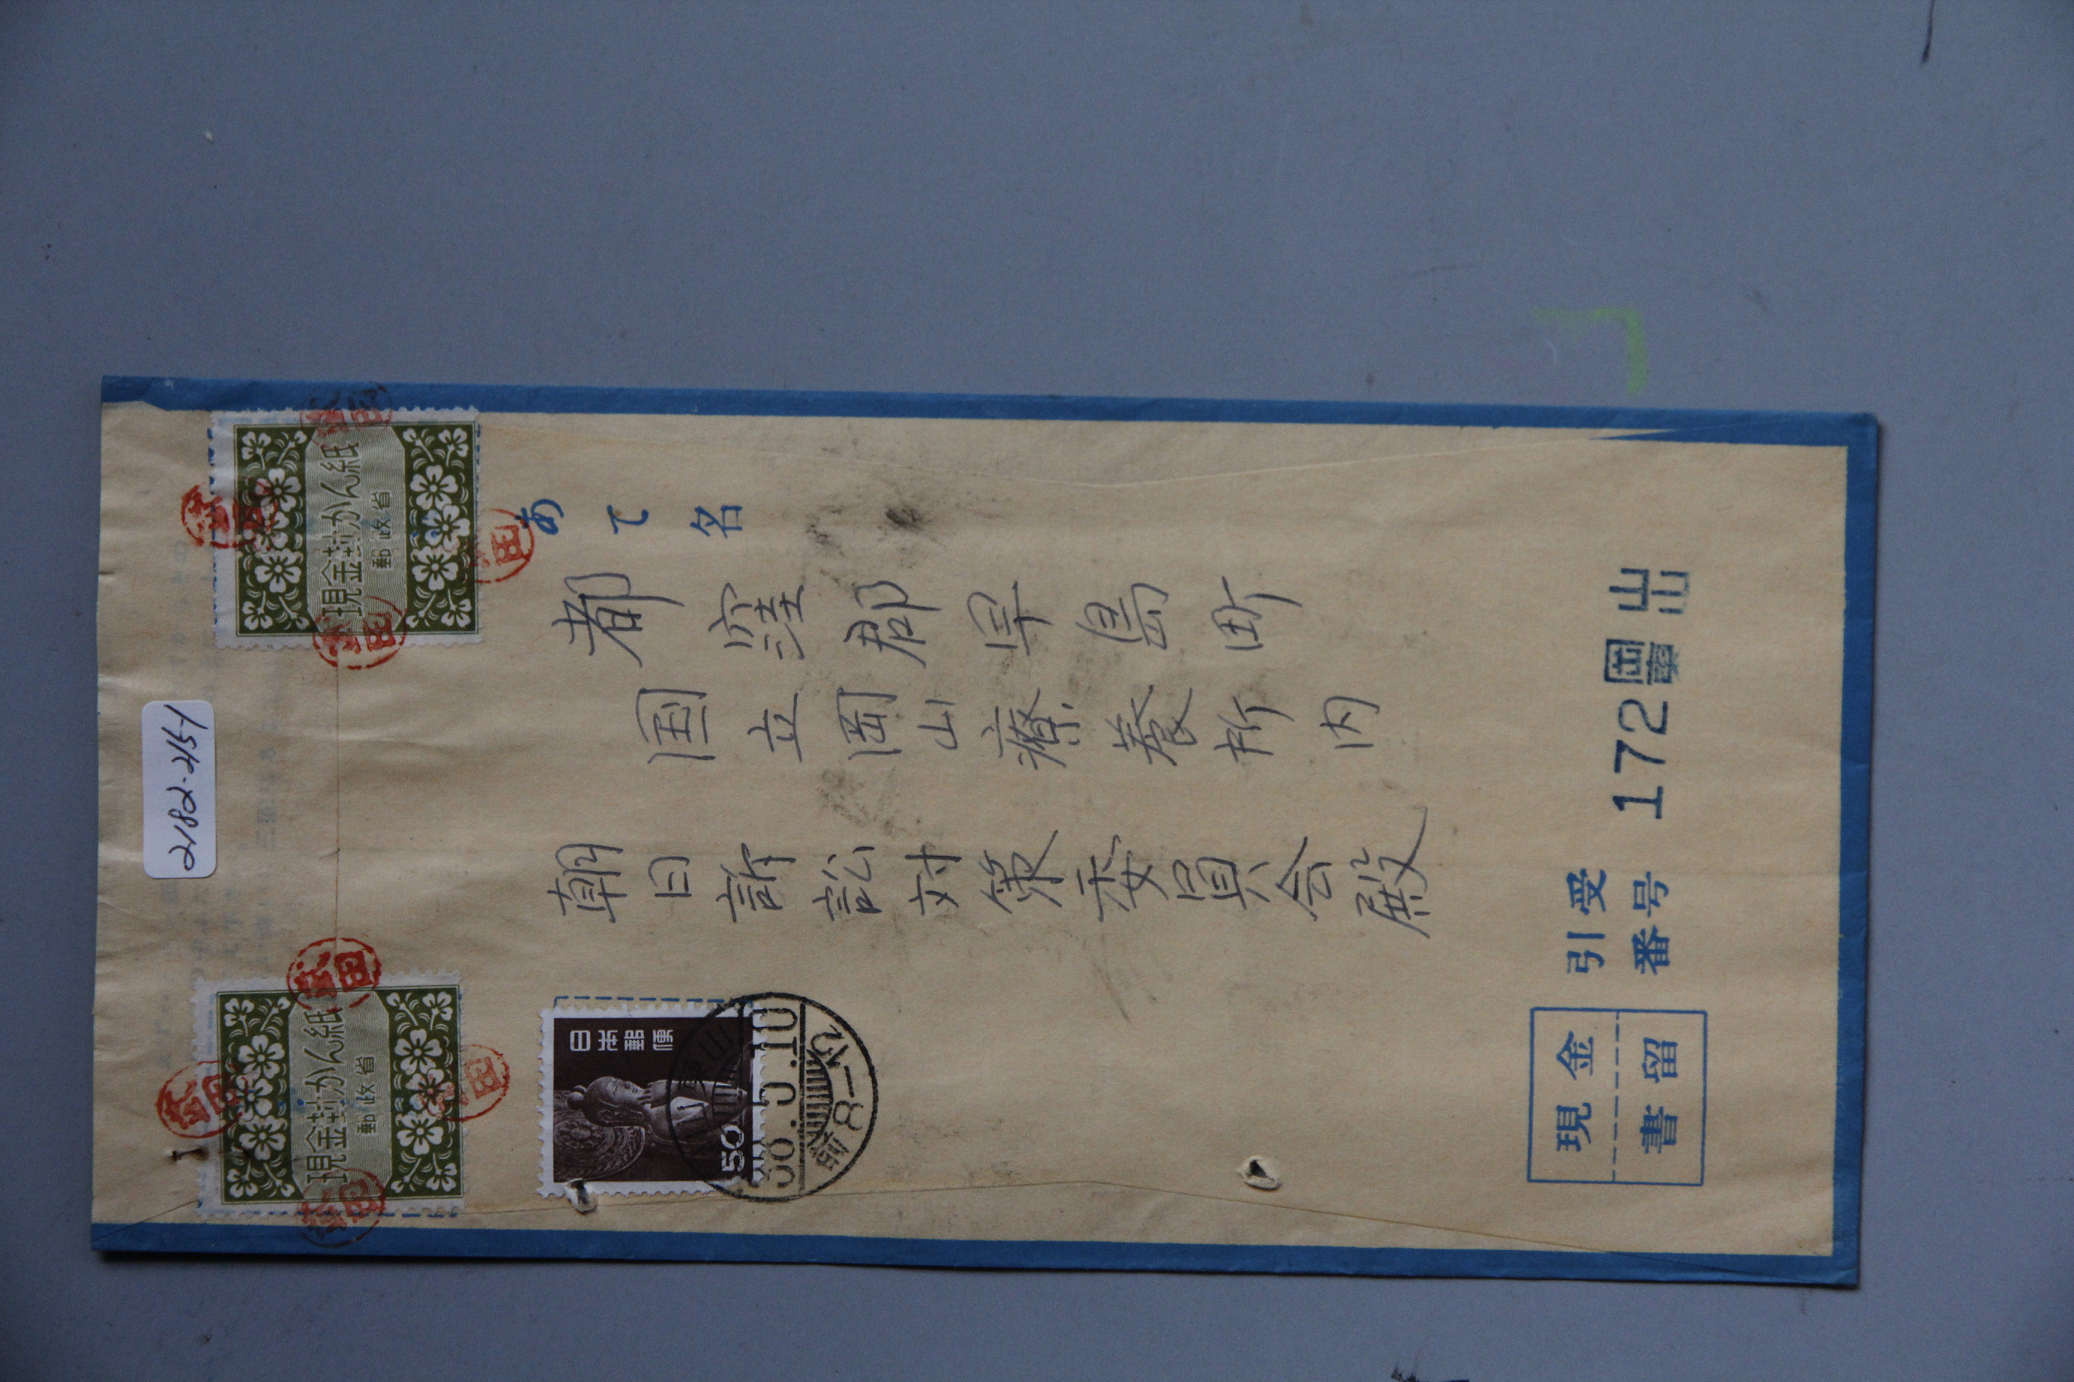 2182-2151
現金封かん紙
郵政省
現金封かん紙
郵政省
あて名
都窪郡早島町
国立岡山療養所内
朝日訴訟対策委員会殿
日本郵便
50
36.5.10
前8-12
現金
書留
引受
番号
172
岡山